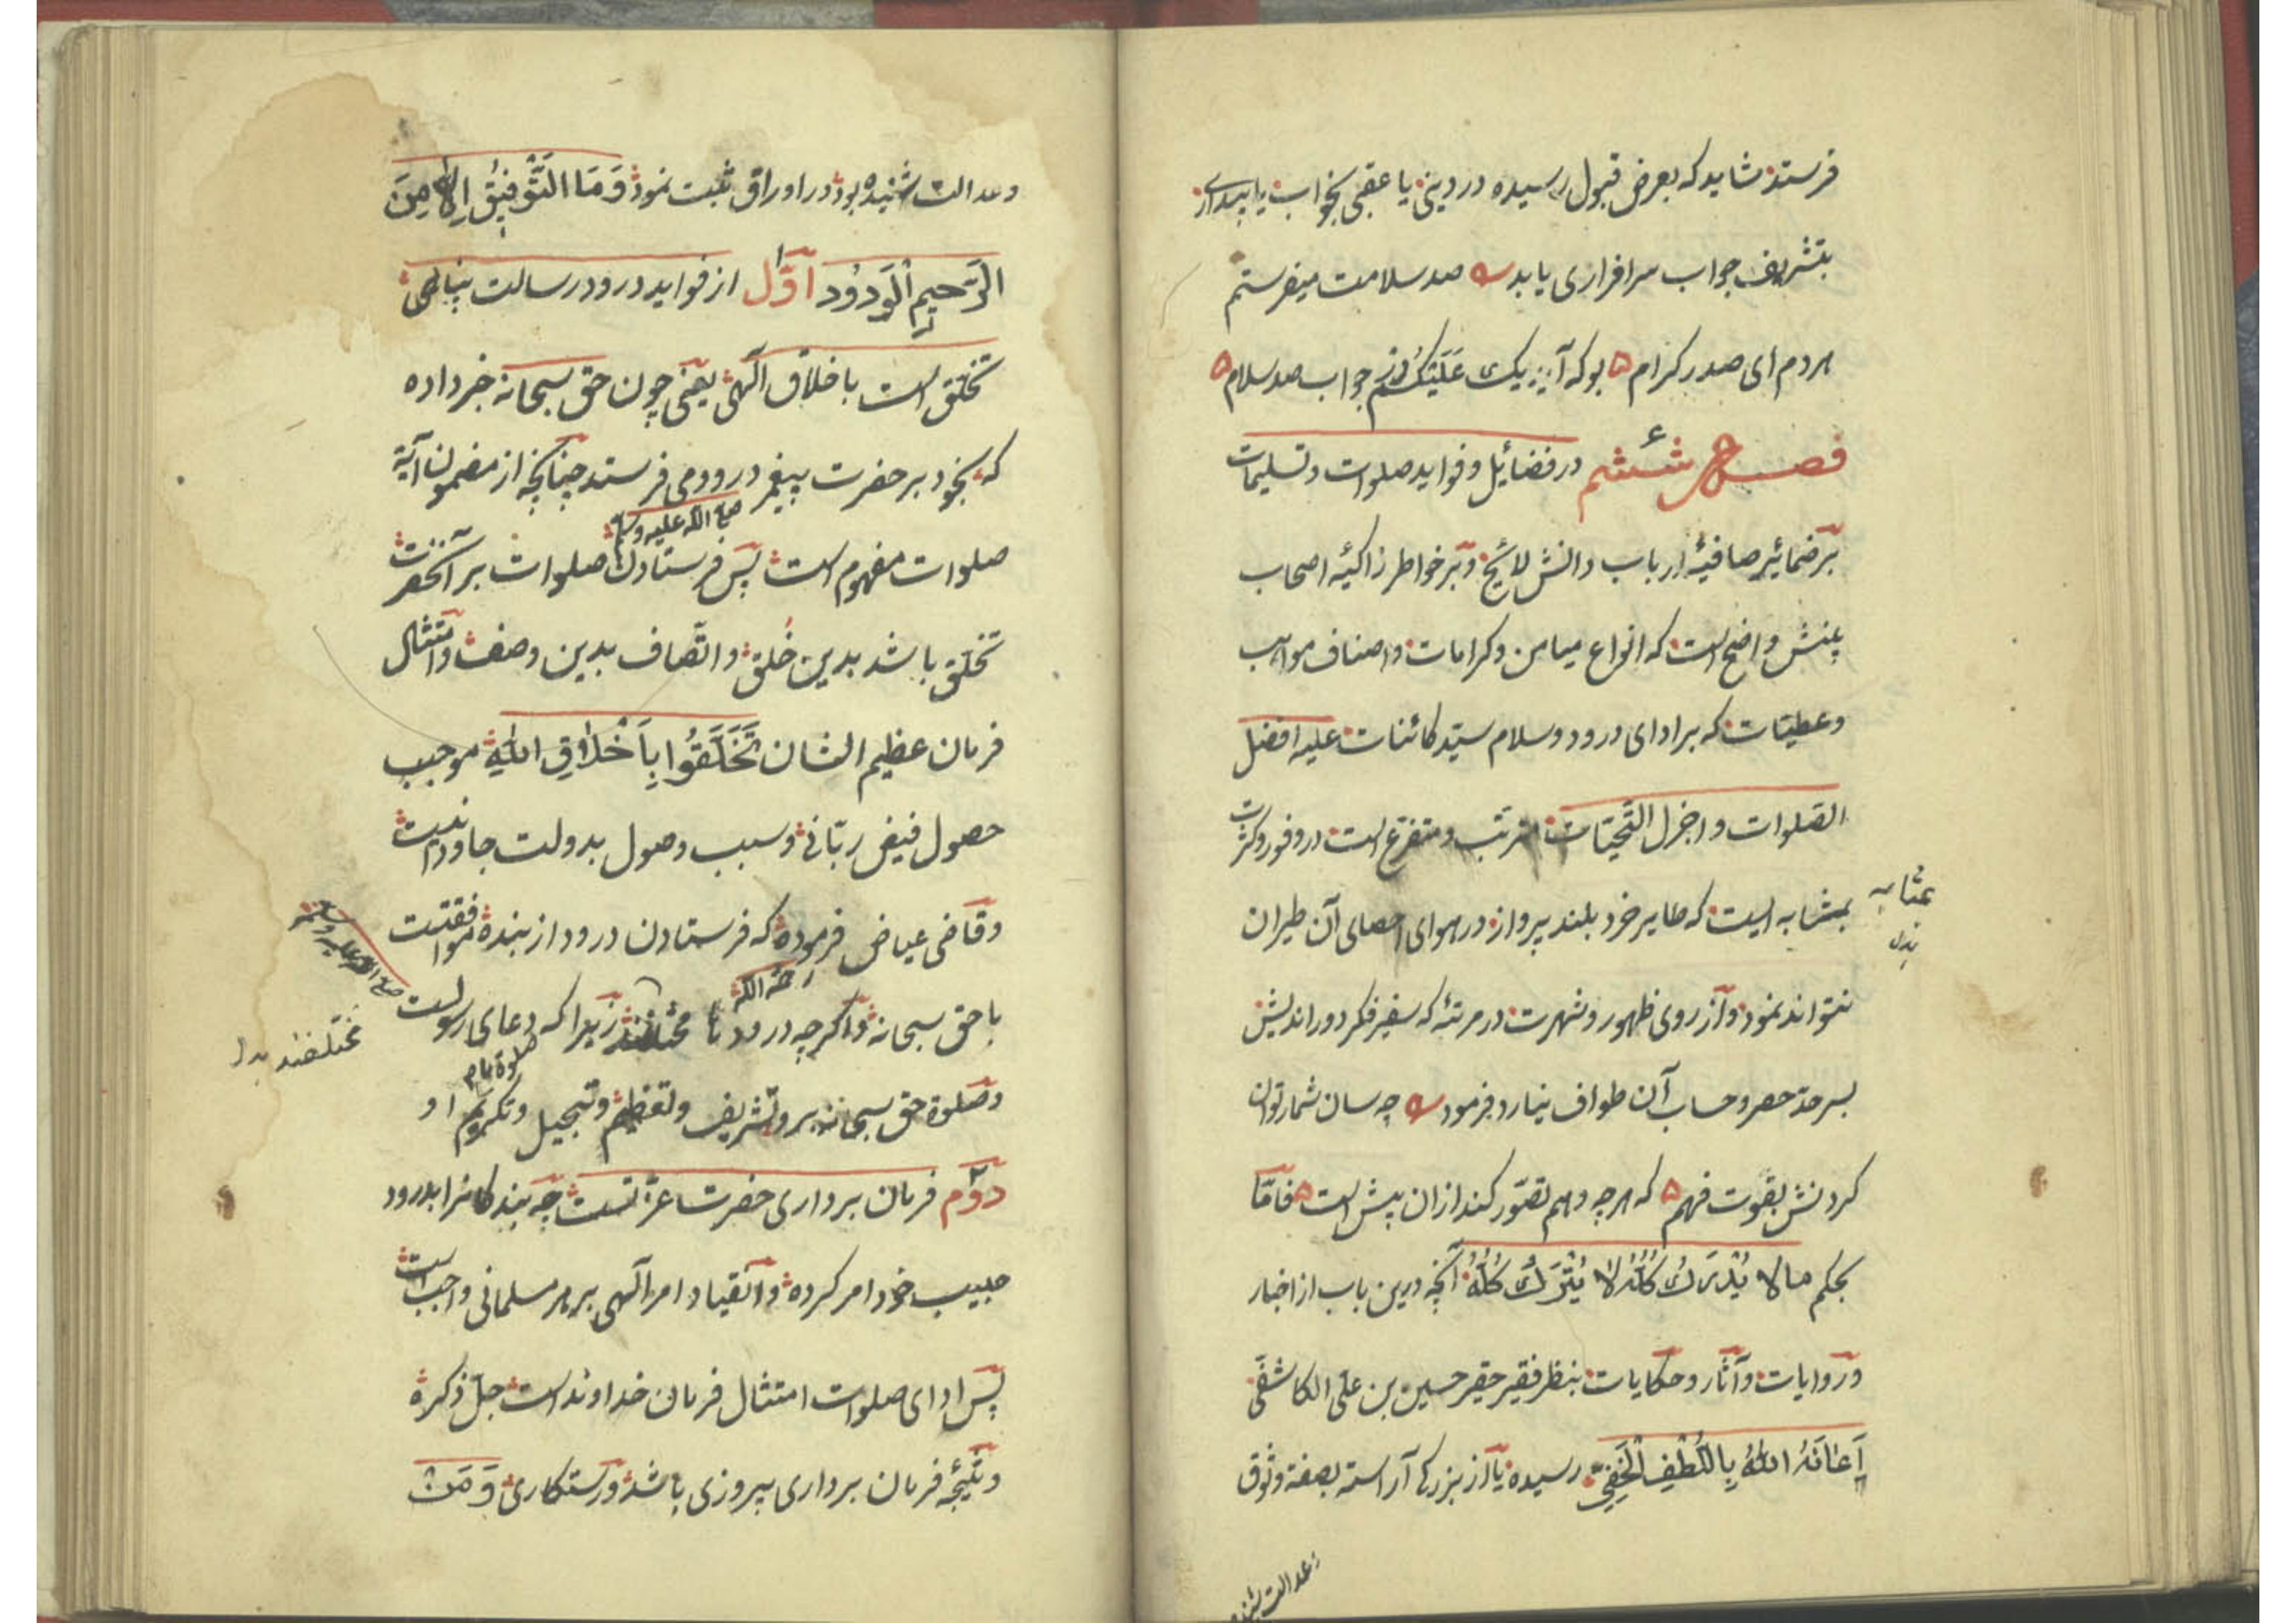 فرستد شاید که بعرض قبول رسیده در دینی یا عقبی بخواب یا بیداری
بتشریف جواب سرافرازی یابد صد سلامت میفرستم
هر دم ای صدر کرام ۵ بو که آید یک علیکم در جواب صد سلام ۵
فصل ششم در فضائیل و فواید صلوات و تسلیمات
بر ضمائیر صافیهٔ ارباب دانش لائیح و بر خواطر زاکیهٔ اصحاب
بینش واضح است که انواع میامن و کرامات و اصناف مواهب
و عطیّات که بر ادای درود و سلام سیّد کائنات علیه افضل
الصّلوات و اجزل التّحیّات مترتّب و متفرّع است در وفور و کثرت
بمثابه ایست که طایر خرد بلند پرواز در هوای احصای آن طیران
بمثابه
بدل
نتواند نمود و از روی ظهور و شهرت در مرتبهٔ که سفیر فکر دور اندیش
بسر حدّ حصر و حساب آن طواف نیارد فرمود چه سان شمار توان
کردنش بقوت فهم ۵ که هر چه وهم تصوّر کند از ان بیش است ۵ فامّا
بحکم ما لا یُدْرَکُ کُلُّهُ لا یُتْرَکُ کُلُّهُ آنچه درین باب از اخبار
و روایات و آثار و حکایات بنظر فقیر حقیر حسین بن علی الکاشفی
اَعَانَهُ اللهُ بِاللُّطْفِ الْخَفِیِّ رسیده یا از بزرگی آراسته بصفة وثوق
و عدالت شنیده
و عدالت شنیده بود در اوراق ثبت نمود وَمَا التَّوْفِیْقُ اِلَّا مِنَ
الرَّحِیْمِ الْوَدُوْد اوّل از فواید درود رسالت پناهی
تخلّق است باخلاق الهی یعنی چون حق سبحانه خبر داده
که بخود بر حضرت پیغمبر درود می فرستد چنانچه از مضمون آیة
صلی الله علیه وسلم
صلوات مفهوم است پس فرستادن صلوات بر آنحضرت
تخلّق باشد بدین خُلق و اتّصاف بدین وصف و امتثال
فرمان عظیم الشان تَخَلَّقُوا بِاَخْلَاقِ اللهِ موجب
حصول فیض ربّانی و سبب وصول بدولت جاودانیست
و قاضی عیاض فرموده که فرستادن درود از بنده موافقتیست
رحمه الله
با حق سبحانه و اگر چه درود ما مختلفند زیرا که دعای رسولست
صلی الله علیه وسلم
مختلفند بدل
صلوة ما
و صلوة حق سبحانه برو تشریف و تعظیم و تبجیل و تکریم او
دوّم فرمان برداری حضرت عزّتست چه بندگانرا بدرود
حبیب خود امر کرده و انقیاد امر الهی بر هر مسلمانی واجب است
پس ادای صلوات امتثال فرمان خداوند است جلّ ذکره
و نتیجهٔ فرمان برداری پیروزی باشد و رستکاری وَ مَنْ